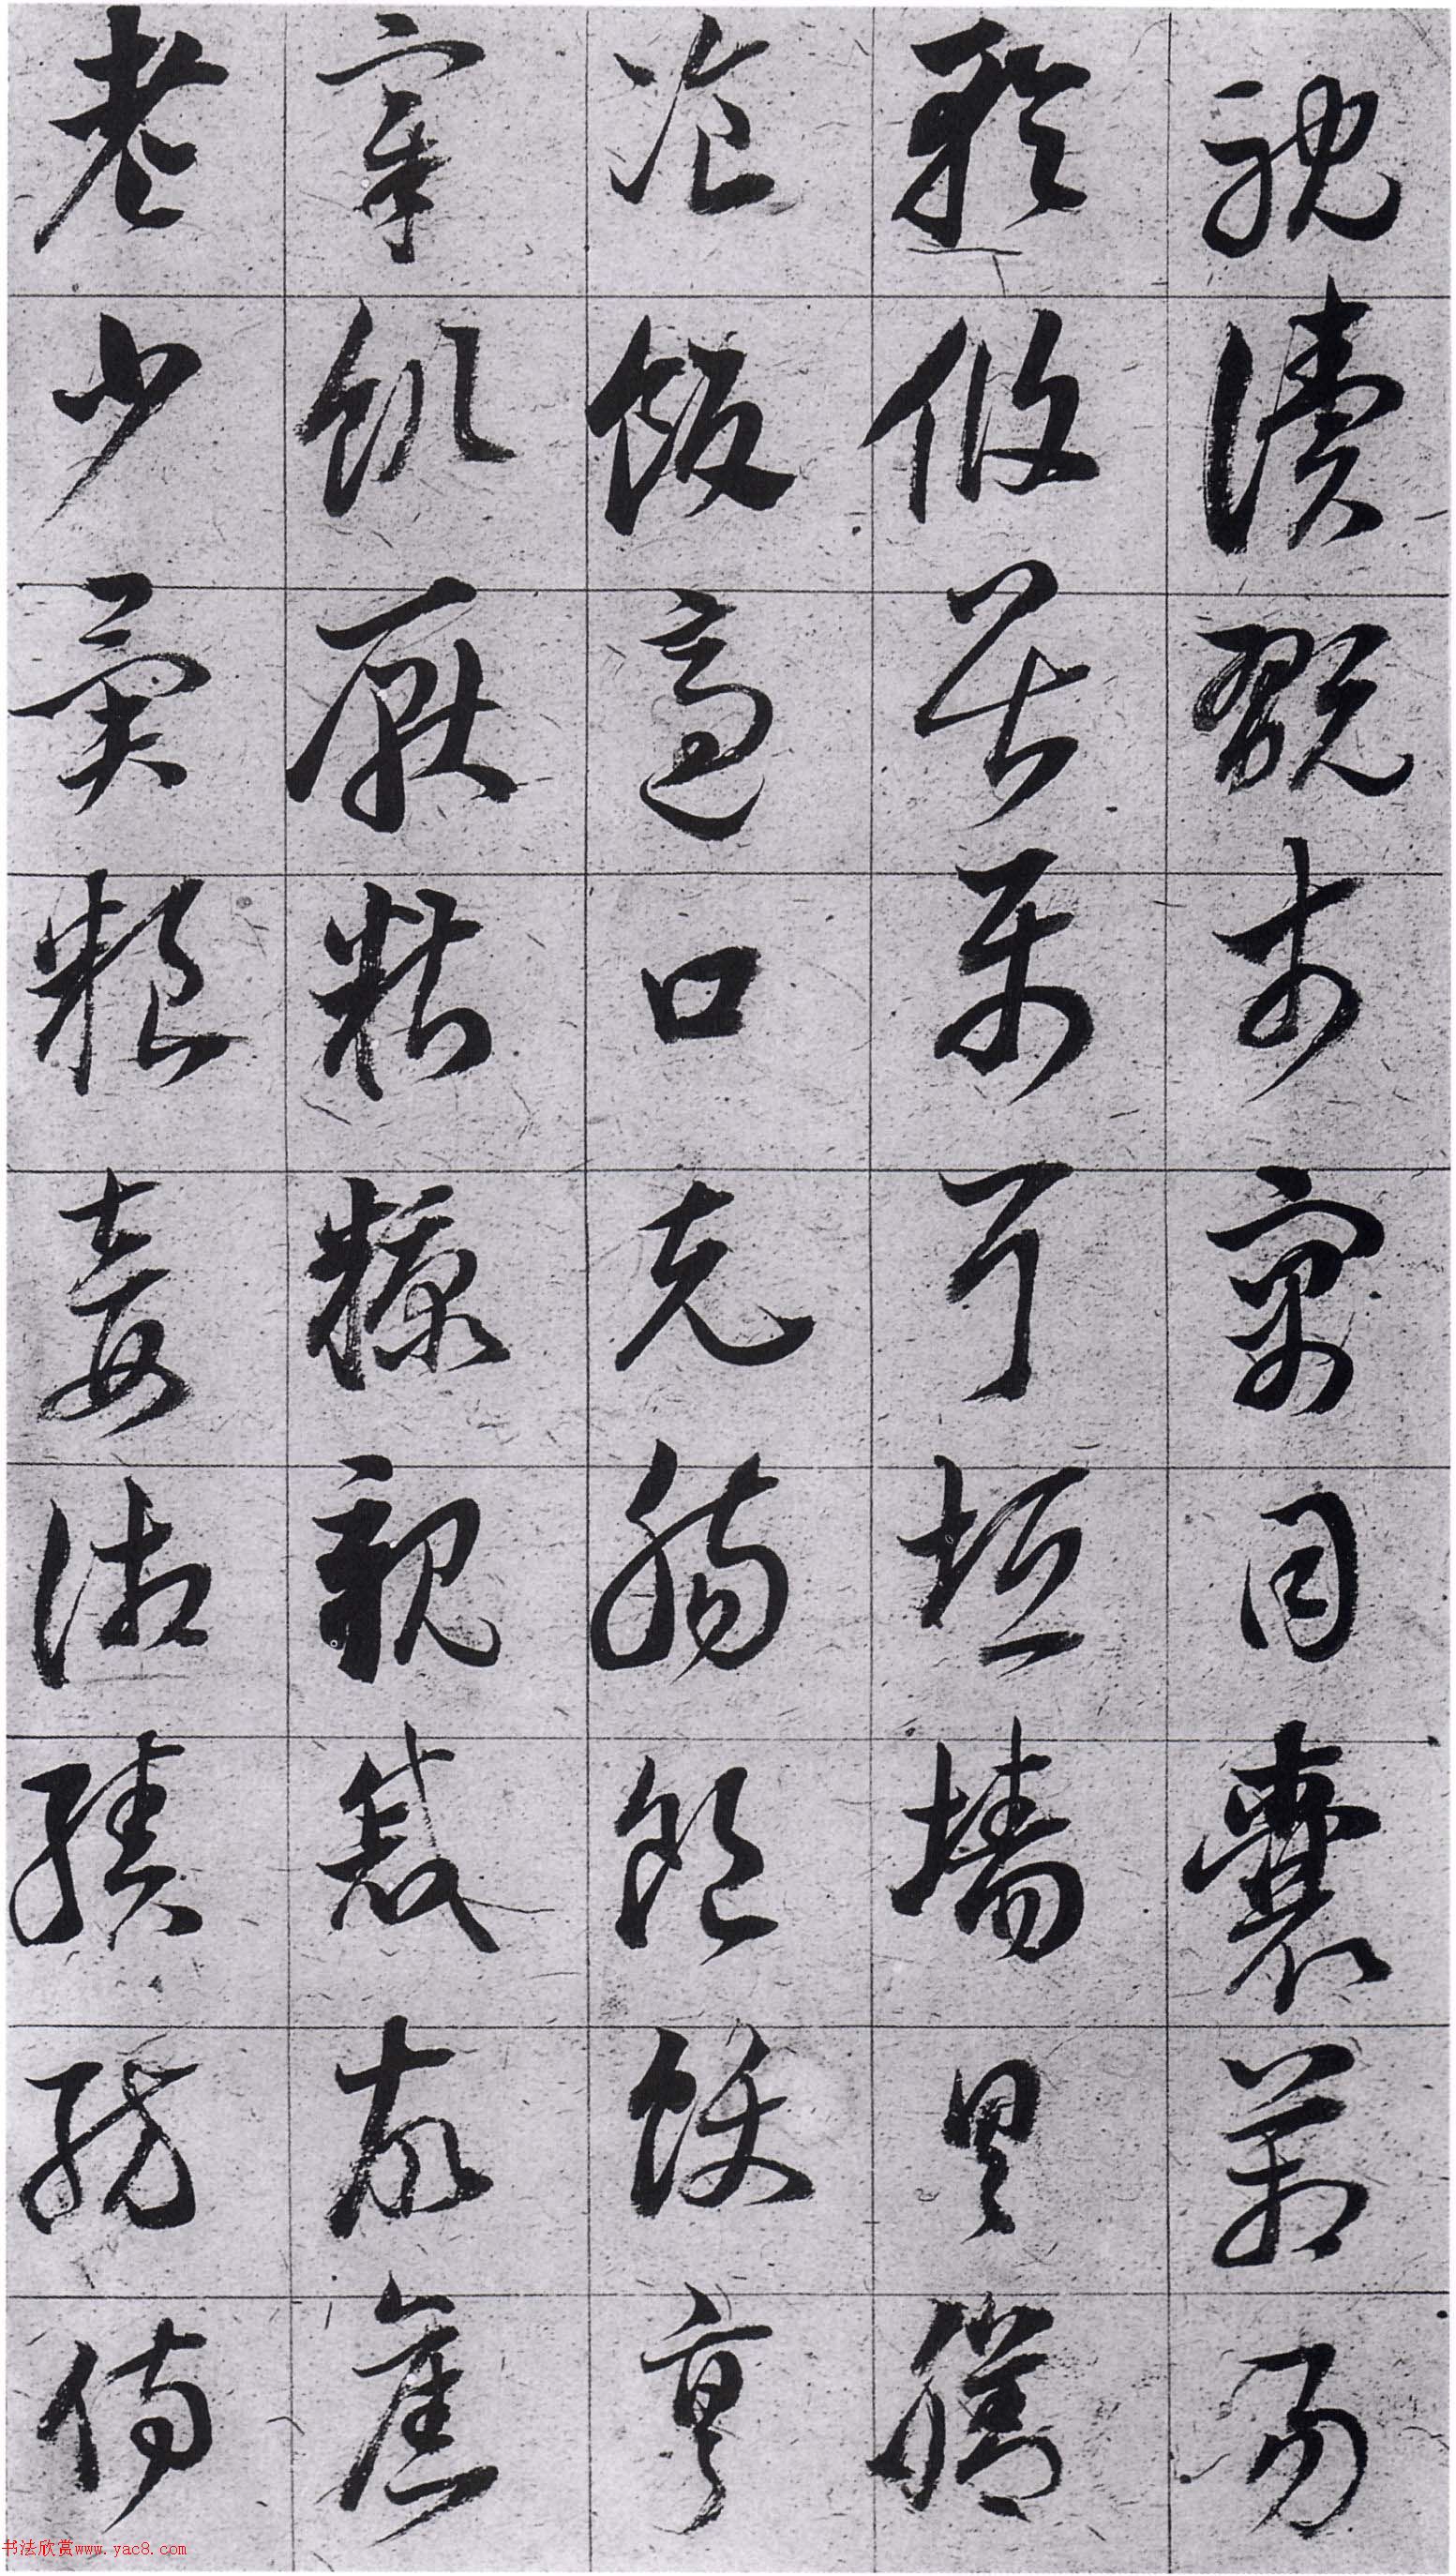 耽讀翫市寓目囊葙易
輶攸畏屬耳垣墻具膳
飡飯適口充腸飽飫烹
宰飢厭糟糠親戚故舊
老少異粮妾御績紡侍
书法欣赏www.yac8.com